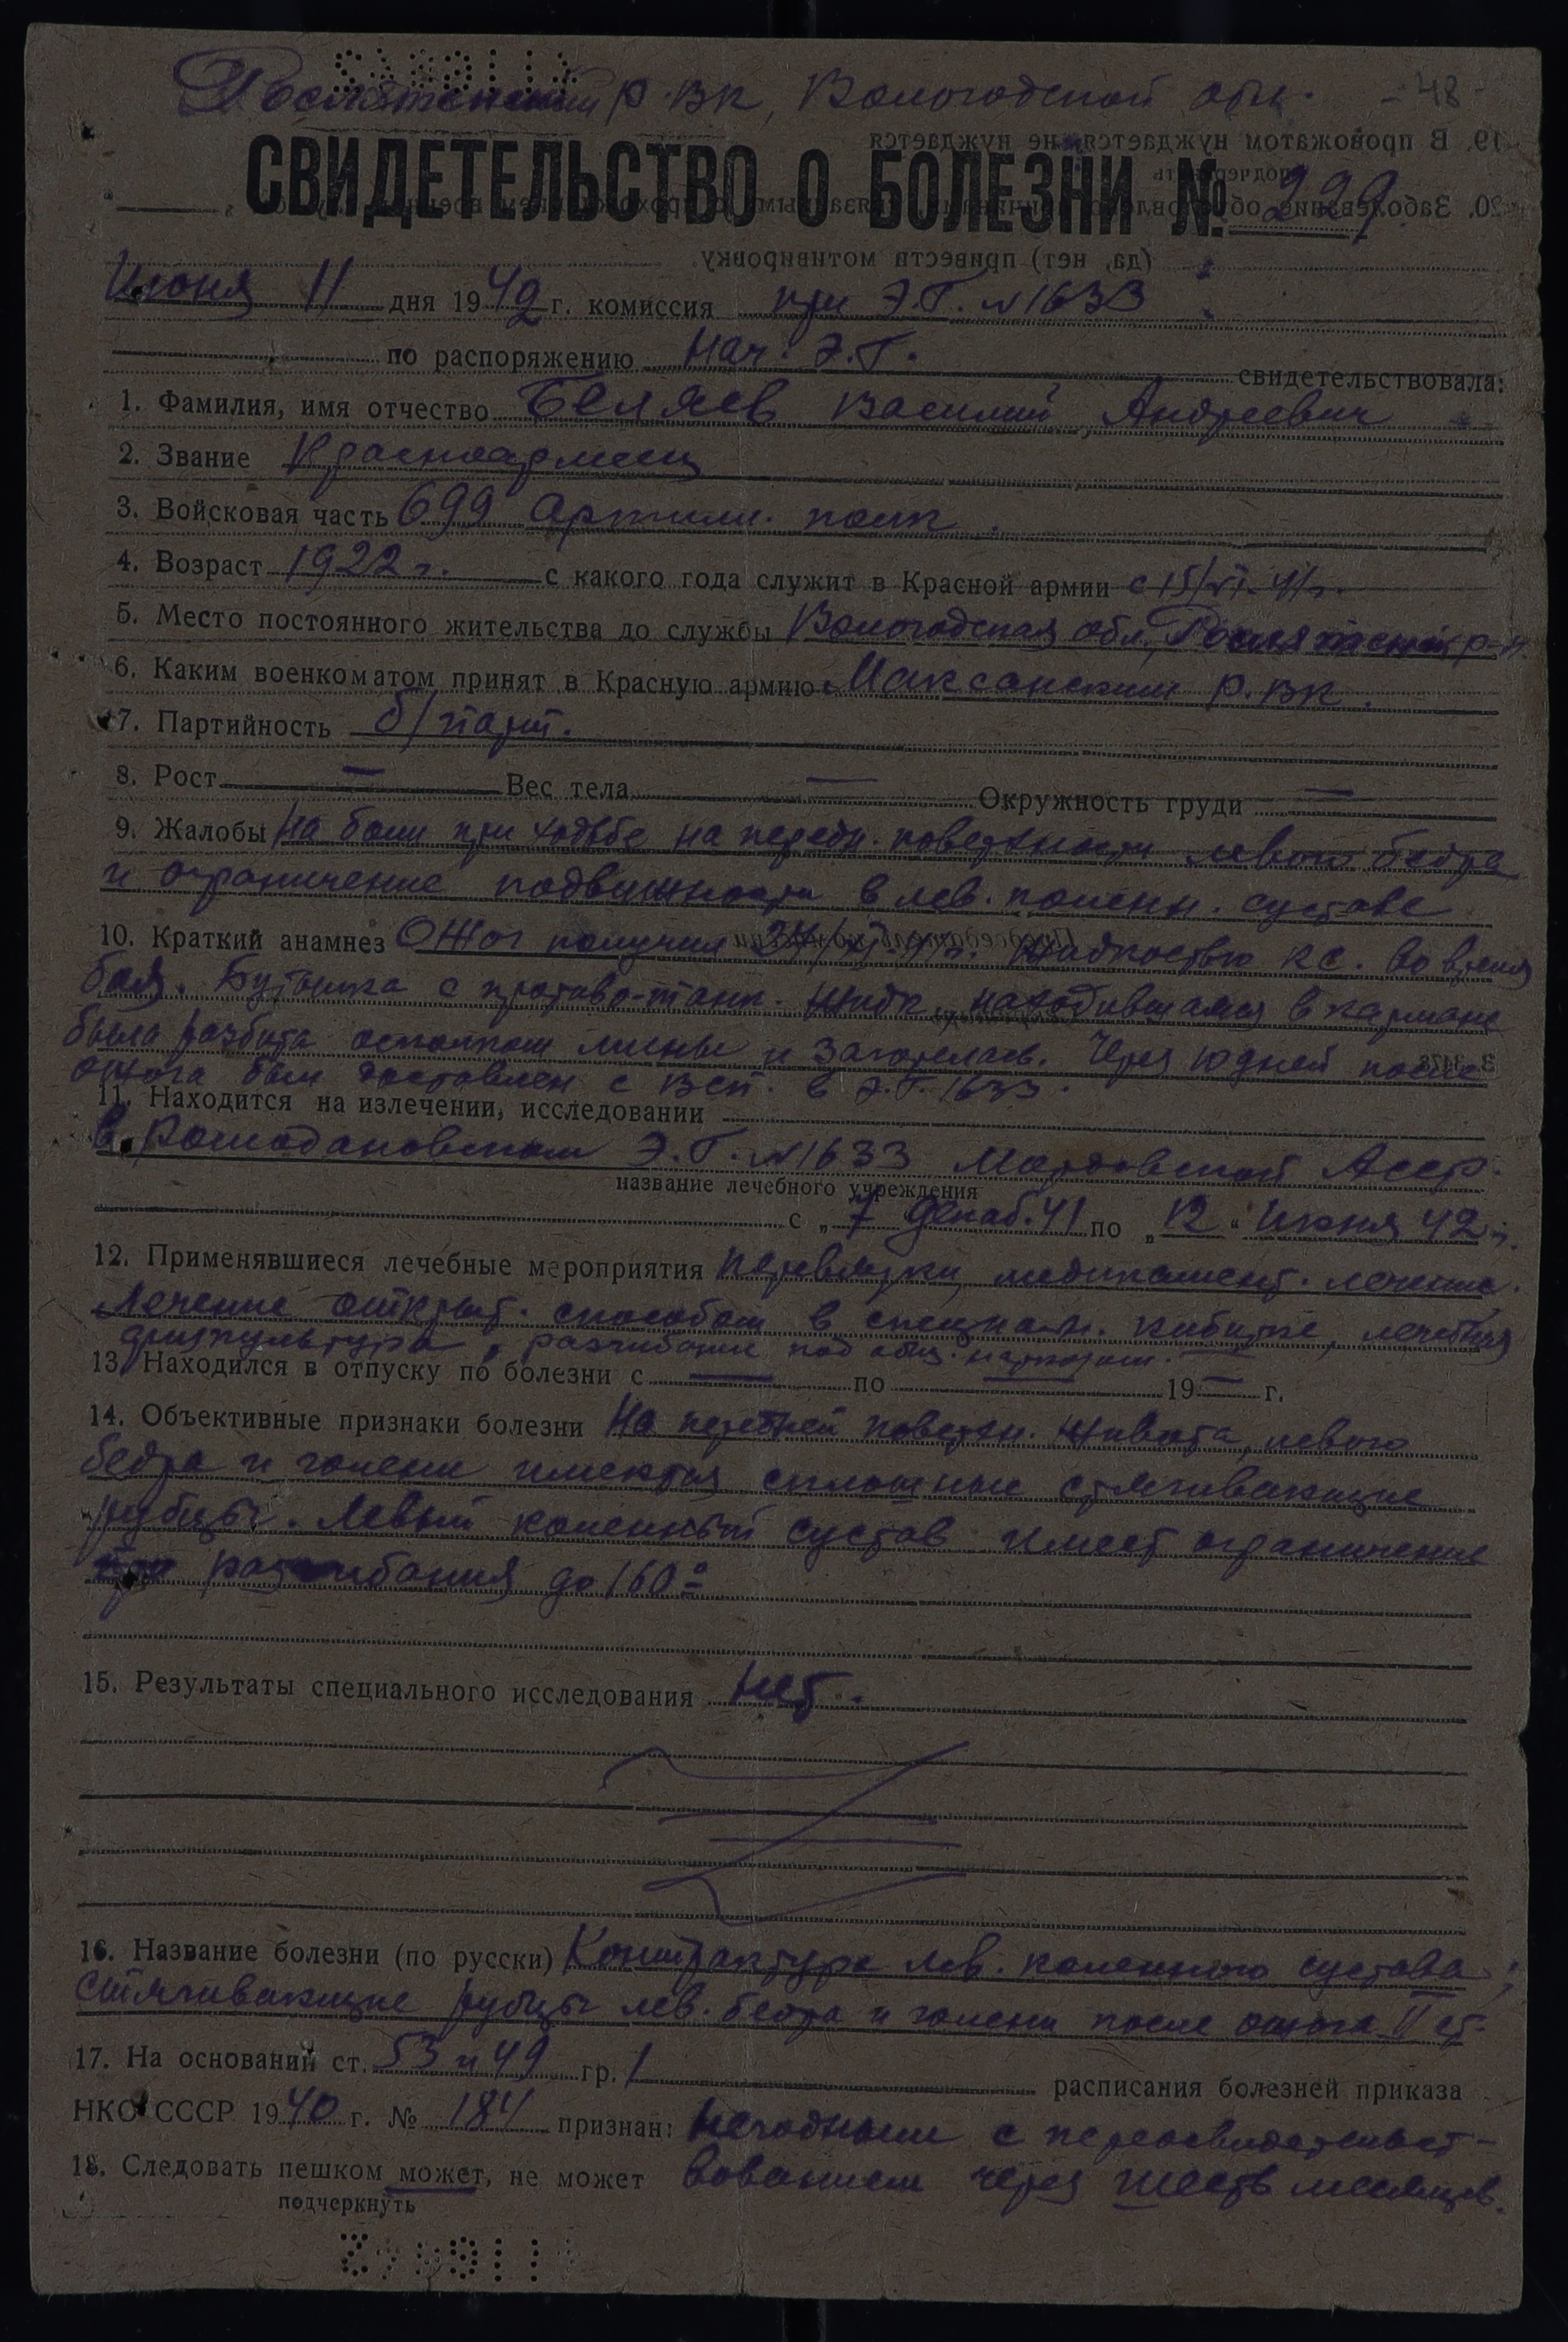 Рослятинский р.вк, Вологодской обл. - 48 -
СВИДЕТЕЛЬСТВО О БОЛЕЗНИ № 229
Июня 11 дня 1942 г. комиссия при Э.Г. № 1633
по распоряжению Нач. Э.Г. свидетельствовала:
1. Фамилия, имя отчество Беляев Василий Андреевич
2. Звание Красноармеец
3. Войсковая часть 699 Артилл. полк.
4. Возраст 1922 г. с какого года служит в Красной армии с 15/VI-41 г.
5. Место постоянного жительства до службы Вологодская обл, Рослятинский р-н.
6. Каким военкоматом принят в Красную армию Максанским р.вк.
7. Партийность б/парт.
8. Рост — Вес тела — Окружность груди —
9. Жалобы На боли при ходьбе на передн. поверхности левого бедра
и ограничение подвижности в лев. коленн. суставе
10. Краткий анамнез Ожог получил 24/XI-41 г. жидкостью КС. во время
боя. Бутылка с противо-танк. жидк., находившаяся в кармане
была разбита осколком мины и загорелась. Через 10 дней после
ожога был доставлен с ВСП. в Э.Г. 1633.
11. Находится на излечении, исследовании
в Ромодановском Э.Г. № 1633 Мордовской Асср.
название лечебного учреждения
с „ 7 декаб. 41 по „12“ Июня 42 г.
12. Применявшиеся лечебные мероприятия перевязки, медикамент. лечение.
Лечение открыт. способом в специальн. кабинке, лечебная
физкультура, разгибание под общ. наркозом.
13. Находился в отпуску по болезни с — по — 19— г.
14. Объективные признаки болезни На передней поверхн. живота, левого
бедра и голени имеются сплошные стягивающие
рубцы. Левый коленный сустав имеет ограничение
разгибания до 160°
15. Результаты специального исследования нет.
16. Название болезни (по русски) Контрактура лев. коленного сустава;
стягивающие рубцы лев. бедра и голени после ожога II ст.
17. На основании ст. 53 и 49 гр. 1 расписания болезней приказа
НКО СССР 1940 г. № 184 признан: Негодным с переосвидетельст-
18. Следовать пешком может, не может вованием через шесть месяцев.
подчеркнуть